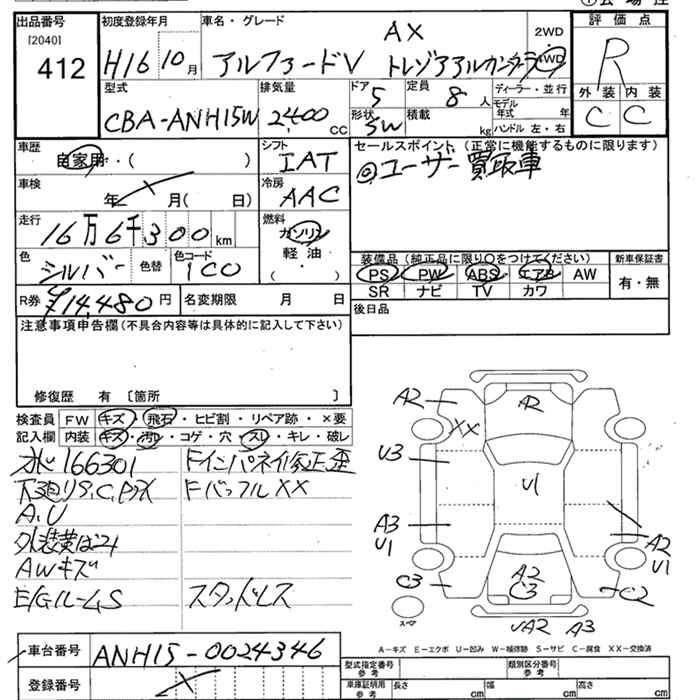 出品番号
[2040]
412
初度登録年月
H16 10月
車名・グレード
AX
アルファードV トレゾアアルカンターラ
2WD
4WD
評価点
R
外装 内装
C C
型式
CBA-ANH15W
排気量
2,400 CC
ドア 5
形状 SW
定員 8人
積載 kg
ディーラー・並行
モデル年式 年
ハンドル 左・右
車歴
自家用・( )
車検
年 月( 日)
走行
16万6千300 km
色
シルバー
色替
色コード
1C0
R券 ¥14,480円
名変期限 月 日
シフト
IAT
冷房
AAC
燃料
ガソリン
軽油
( )
セールスポイント(正常に機能するものに限ります)
◎ユーザー買取車
装備品(純正品に限り○をつけてください)
新車保証書
PS PW ABS エアB AW
SR ナビ TV カワ
有・無
後日品
注意事項申告欄(不具合内容等は具体的に記入して下さい)
修復歴 有 〔箇所 〕
検査員記入欄
FW キズ・飛石・ヒビ割・リペア跡・×要
内装 キズ・汚れ・コゲ・穴・スレ・キレ・破レ
166301
A、U
AWキズ
E/Gルーム S
Fインパネイ修正歪
FバッフルXX
スタッドレス
A2
XX
U3
A3
U1
C3
A2
U1
A2
C3
A2
U1
C2
UA2 A3
スペア
A-キズ E-エクボ U-凹み W-補修跡 S-サビ C-腐食 XX-交換済
車台番号
ANH15-0024346
登録番号
型式指定番号 参考
類別区分番号 参考
車庫証明用 参考
長さ cm
幅 cm
高さ cm